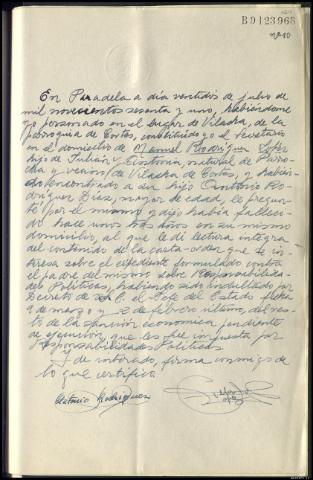 B9123968
nº 10
En Paradela a día ventidos de julio de
mil novecientos sesenta y uno, habiéndome
yo personado en el lugar de Vilacha, de la
parroquia de Cortes, constituído yo el Secretario
en el domicilio de Manuel Rodríguez López
hijo de Julián y Antonia, natural de Parro-
cha y vecino de Vilacha de Cortes, y habien-
do encontrado a su hijo Antonio Ro-
dríguez Díaz, mayor de edad, le pregun-
té por el mismo y dijo había falleci-
do hace unos años en su mismo
domicilio, al que le dí lectura íntegra
del contenido de la carta-orden que se in-
teresa sobre el expediente formulado contra
el padre del mismo sobre Responsabilida-
des Políticas, habiendo sido indultado por
Decreto de S.E. el Jefe del Estado fecha
9 de marzo y de febrero último, del res-
to de la sanción económica pendiente
de ejecución, que les fue impuesta por
Responsabilidades Políticas.
Y de enterado, firma conmigo de
lo que certifico
Antonio Rodriguez